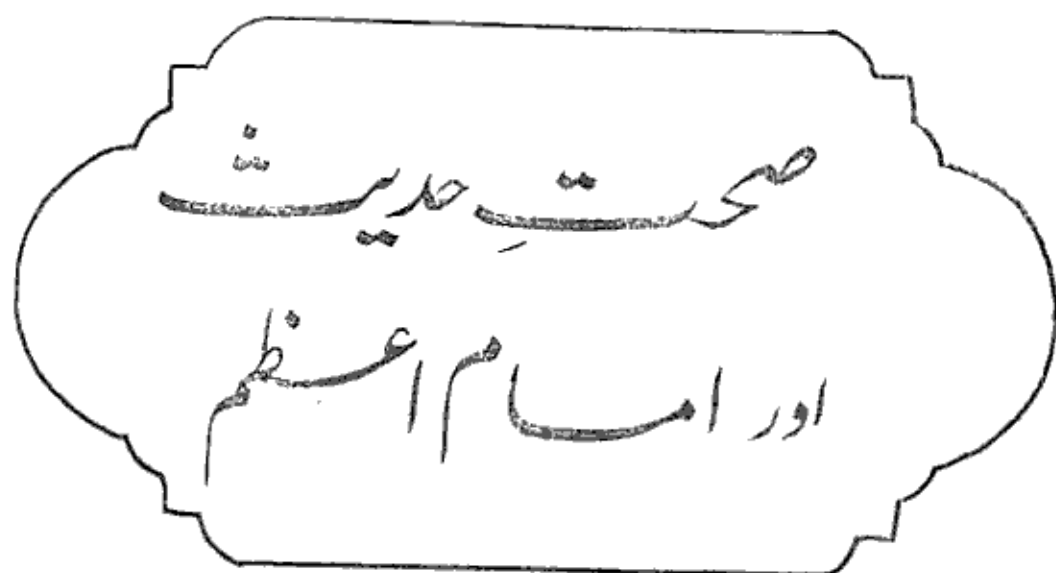 صحتِ حدیث
اور امام اعظم